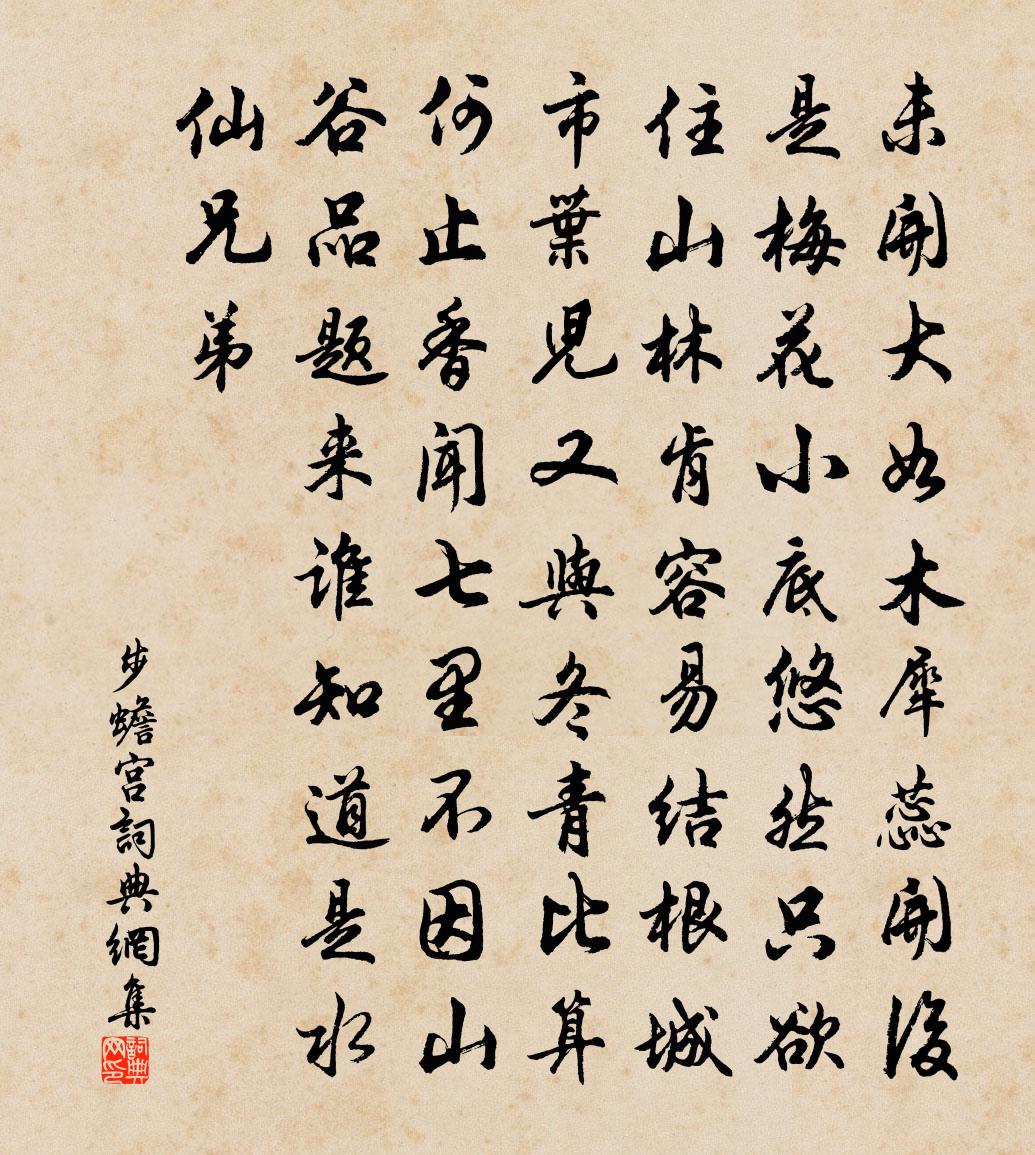 未開大如木犀蕊開後
是梅花小底悠然只欲
住山林肯容易結根城
市葉兒又與冬青比算
何止香聞七里不因山
谷品题来誰知道是水
仙兄弟
步蟾宫詞典網集
詞典网印